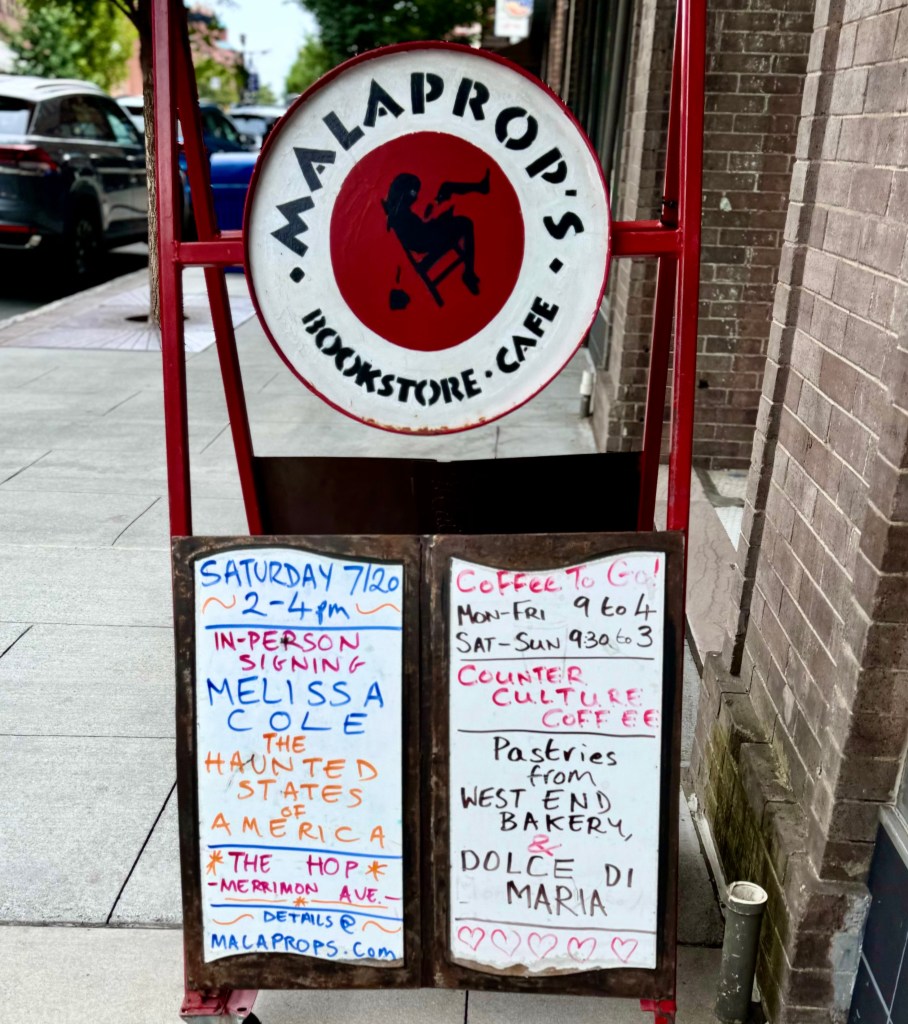 MALAPROP'S
BOOKSTORE · CAFE
SATURDAY 7/20
2-4pm
IN-PERSON
SIGNING
MELISSA
COLE
THE
HAUNTED
STATES
OF
AMERICA
THE HOP
-MERRIMON AVE.-
DETAILS @
MALAPROPS.Com
COFFEE To Go!
MON-FRI 9 to 4
SAT-SUN 9:30 to 3
COUNTER
CULTURE
COFFEE
Pastries
from
WEST END
BAKERY,
&
DOLCE DI
MARIA